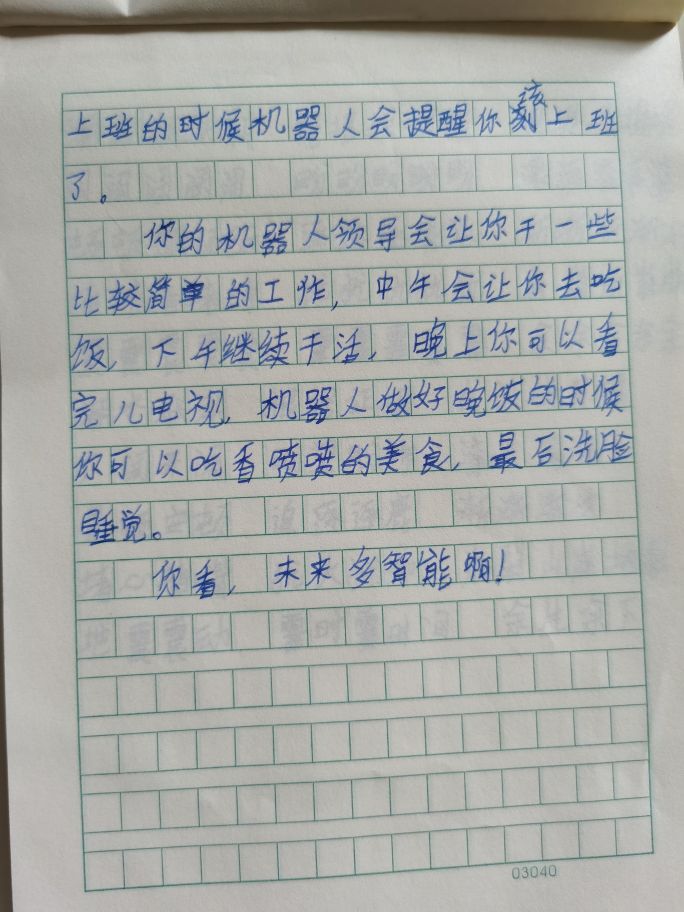 上班的时候机器人会提醒你该上班
了。
你的机器人领导会让你干一些
比较简单的工作，中午会让你去吃
饭，下午继续干活，晚上你可以看
完儿电视，机器人做好晚饭的时候
你可以吃香喷喷的美食，最后洗脸
睡觉。
你看，未来多智能啊！
03040